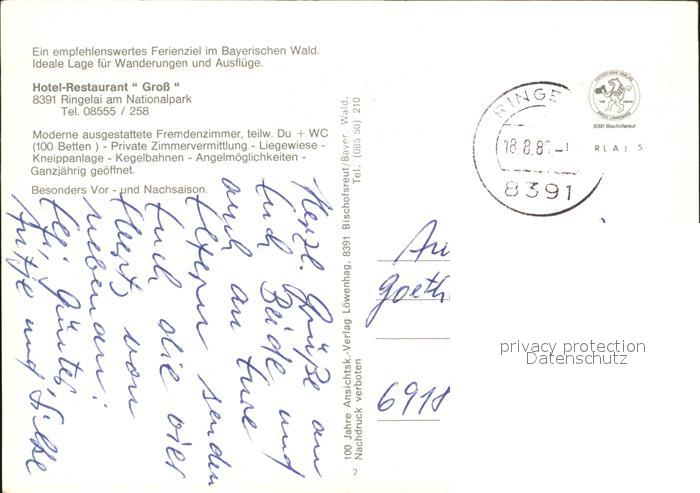 Ein empfehlenswertes Ferienziel im Bayerischen Wald.
Ideale Lage für Wanderungen und Ausflüge.
Hotel-Restaurant “ Groß “
8391 Ringelai am Nationalpark
Tel. 08555 / 258
Moderne ausgestattete Fremdenzimmer, teilw. Du + WC
(100 Betten ) - Private Zimmervermittlung - Liegewiese -
Kneippanlage - Kegelbahnen - Angelmöglichkeiten -
Ganzjährig geöffnet.
Besonders Vor - und Nachsaison.
Herzl. Grüße an
Euch Beide und
auch an Eure
Eltern senden
Euch die vier
Hertz von
nebenan!
Günter,
Antje und Silke
100 Jahre Ansichtsk.-Verlag Löwenhag, 8391 Bischofsreut/Bayer. Wald.
Nachdruck verboten Tel. (085 50) 210
2
RINGE
18.8.8
RLAI 5
8391
8391 Bischofsreut
An
Goeth
6918
privacy protection
Datenschutz